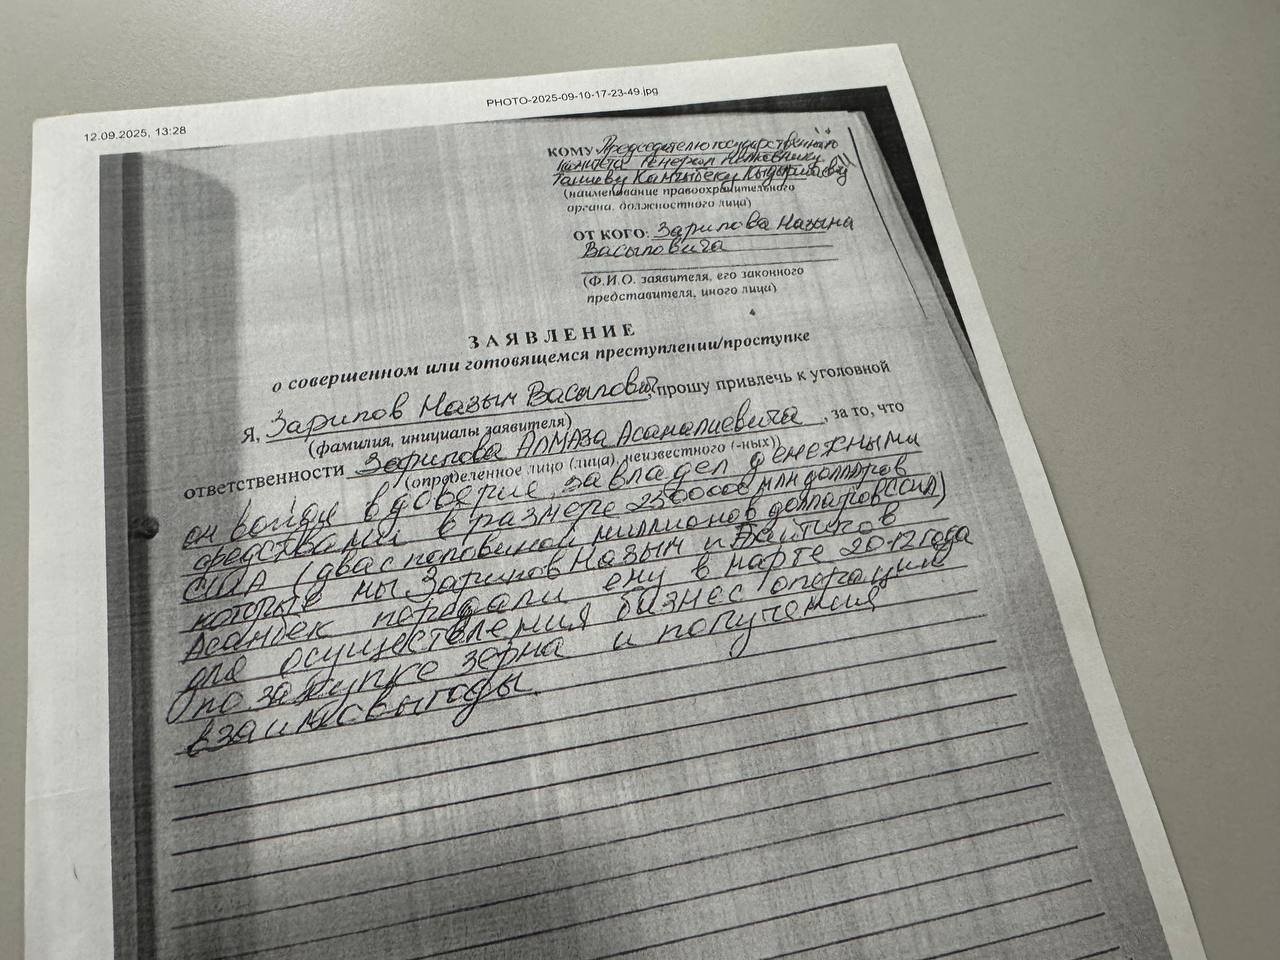 12.09.2025, 13:28
PHOTO-2025-09-10-17-23-49.jpg
КОМУ Председателю государственного
комитета Генерал полковнику
Ташиеву Камчыбеку Кыдыршаевичу
(наименование правоохранительного
органа, должностного лица)
ОТ КОГО: Зарипова Назыма
Васыловича
(Ф.И.О. заявителя, его законного
представителя, иного лица)
ЗАЯВЛЕНИЕ
о совершенном или готовящемся преступлении/проступке
Я, Зарипов Назым Васылович, прошу привлечь к уголовной
(фамилия, инициалы заявителя)
ответственности Зарипова АЛМАЗА Асаналиевича, за то, что
(определенное лицо (лица), неизвестного (-ных))
он войдя в доверие, завладел денежными
средствами в размере 2500000 млн долларов
США (два с половиной миллионов долларов США)
которые мы Зарипов Назым и
Асанбек передали ему в марте 2012 года
для осуществления бизнес операции
по закупке зерна и получения
взаимовыгоды.